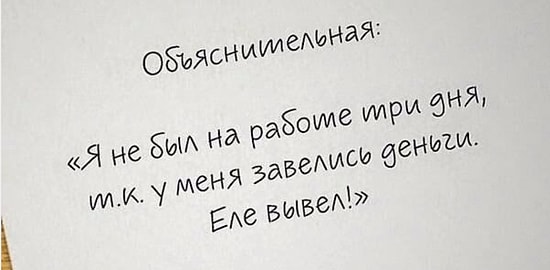 Объяснительная:
«Я не был на работе три дня,
т.к. у меня завелись деньги.
Еле вывел!»